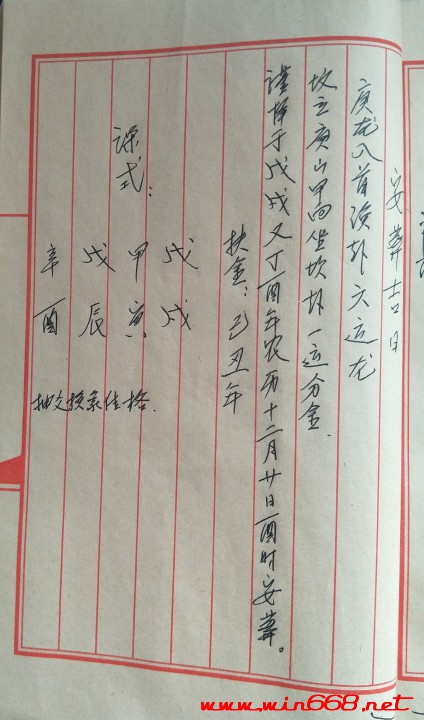 安葬吉日
庚龙入首涣卦六运龙
坟立庚山甲向坐坎卦一运分金.
谨择于戊戌又丁酉年农历十二月廿日酉时安葬。
扶金:己丑年
课式:
戊戌
甲寅
戊辰
辛酉
抽爻换象佳格.
www.win668.net